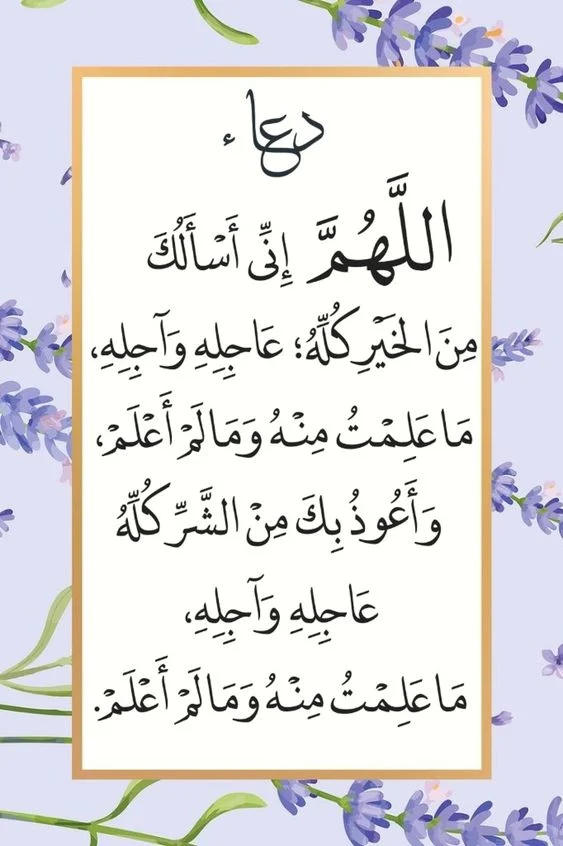 دعاء
اللَّهُمَّ إِنِّي أَسْأَلُكَ
مِنَ الْخَيْرِ كُلِّهُ؛ عَاجِلِهِ وَآجِلِهِ،
مَا عَلِمْتُ مِنْهُ وَمَا لَمْ أَعْلَمْ،
وَأَعُوذُ بِكَ مِنَ الشَّرِّ كُلِّهُ
عَاجِلِهِ وَآجِلِهِ،
مَا عَلِمْتُ مِنْهُ وَمَا لَمْ أَعْلَمْ.